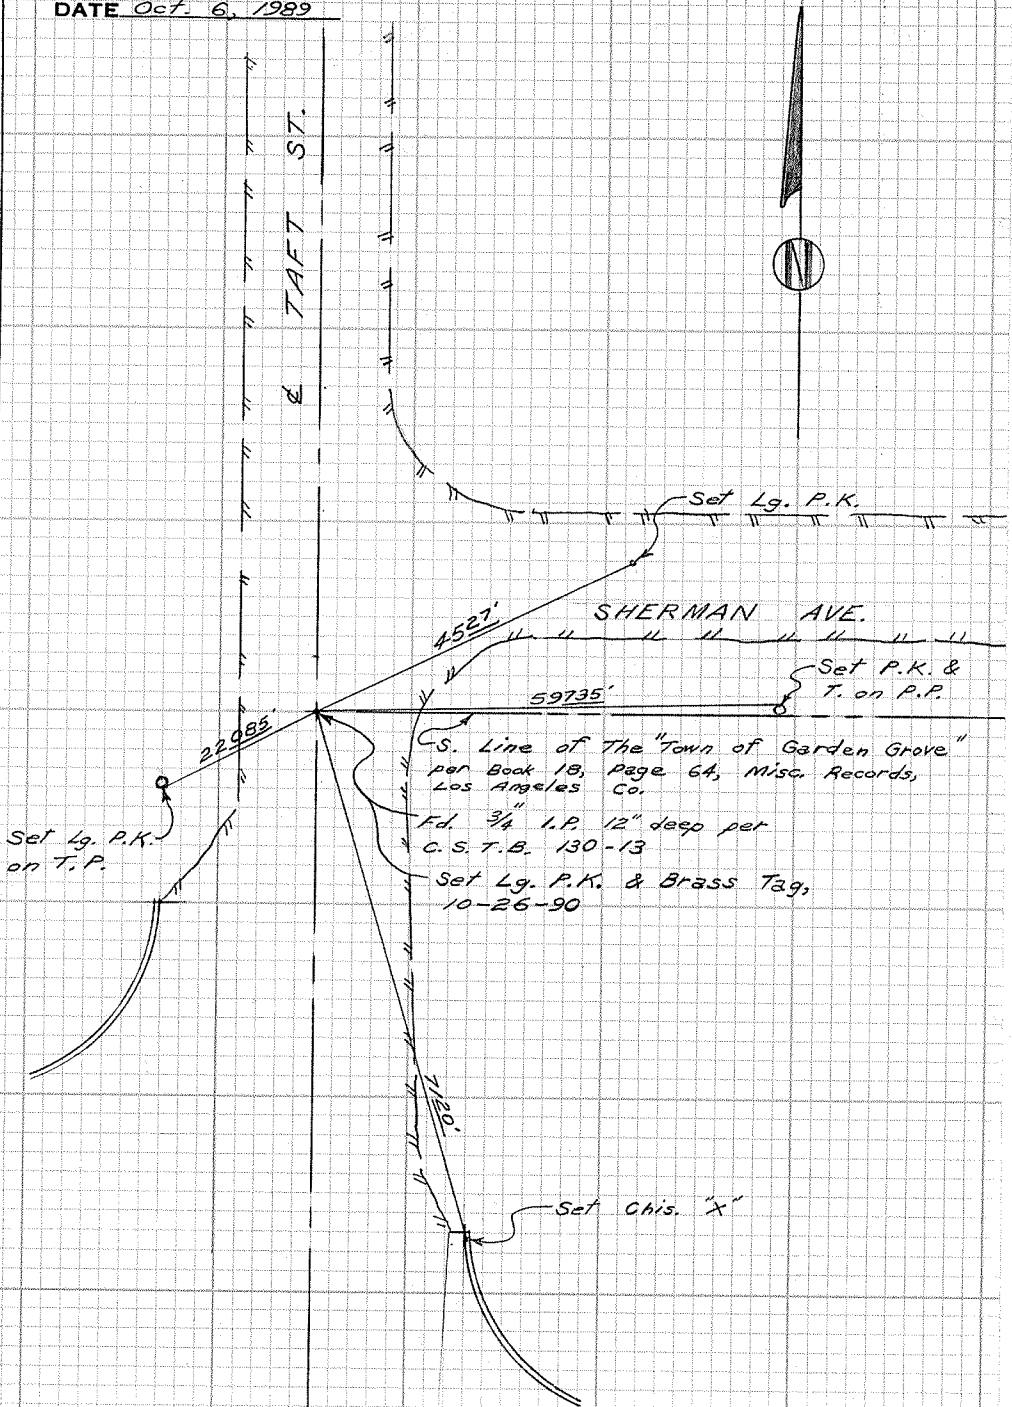 DATE Oct. 6, 1989
℄ TAFT ST.
N
Set Lg. P.K.
SHERMAN AVE.
45.27'
Set P.K. &
T. on P.P.
59.735'
22.085'
S. Line of The "Town of Garden Grove"
per Book 18, Page 64, Misc. Records,
Los Angeles Co.
Fd. 3/4" I.P. 12" deep per
C.S.T.B. 130-13
Set Lg. P.K.
on T.P.
Set Lg. P.K. & Brass Tag,
10-26-90
71.20'
Set Chis. "X"